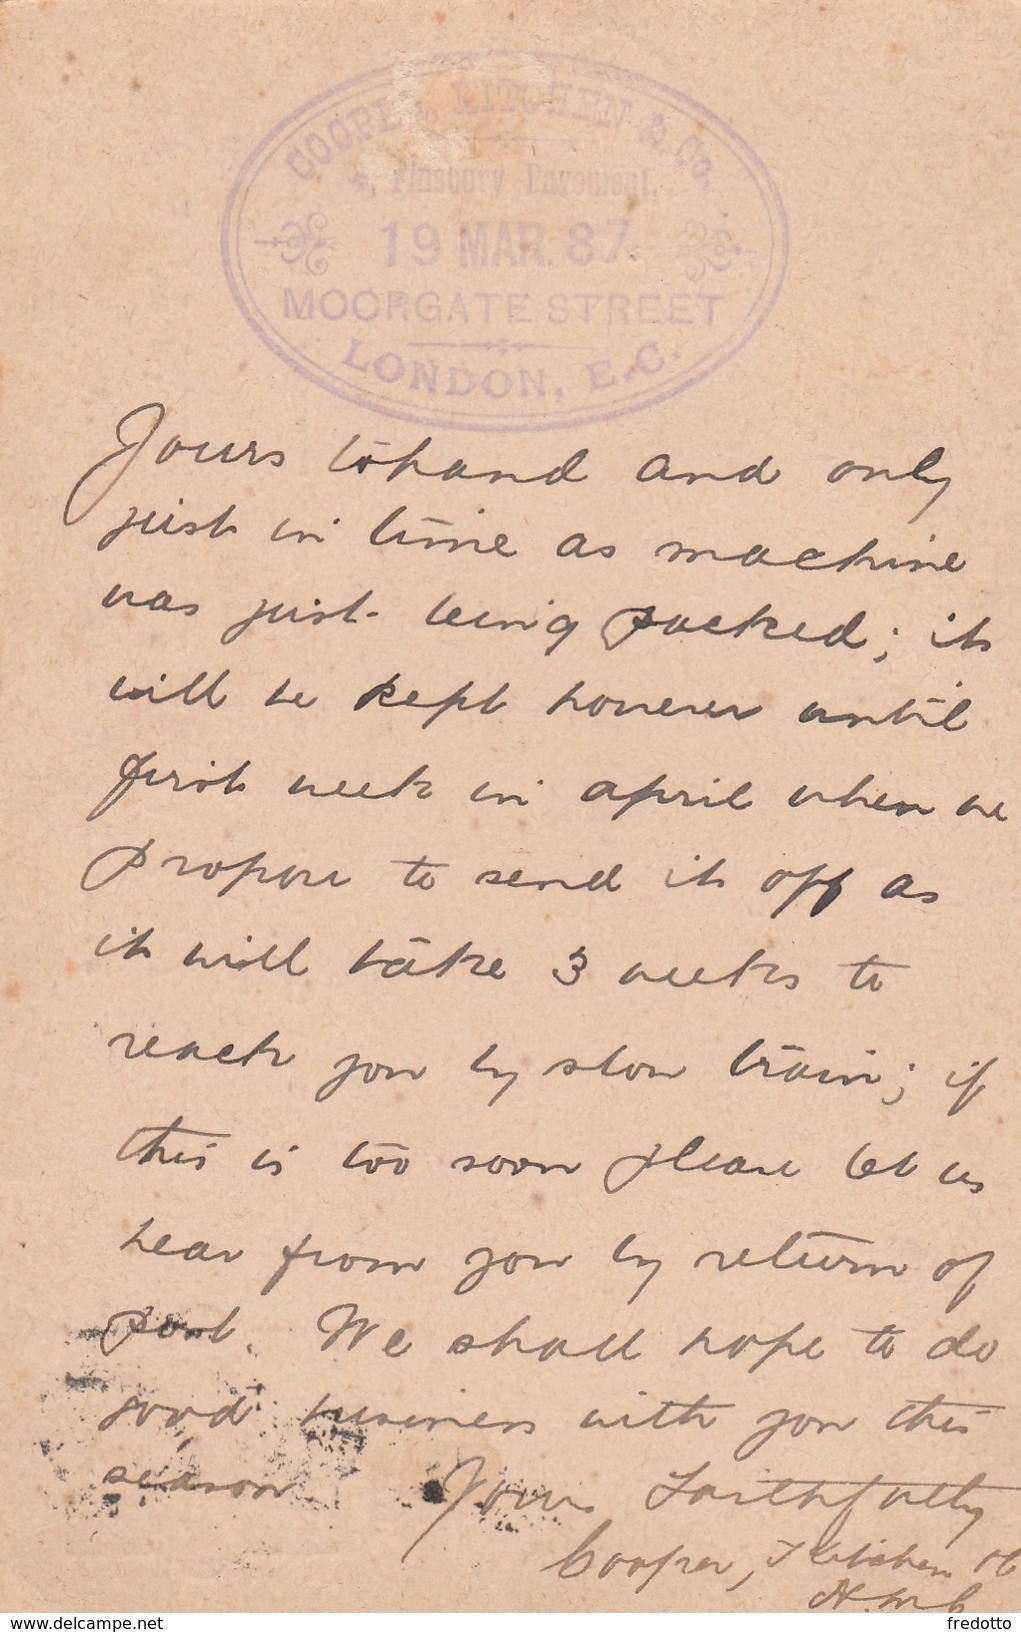 COOPER, KITCHEN & Co.
4, Finsbury Pavement,
19 MAR. 87
MOORGATE STREET
LONDON, E.C.
Yours to hand and only
just in time as machine
was just being packed; it
will be kept however until
first week in april when we
propose to send it off as
it will take 3 weeks to
reach you by slow train; if
this is too soon please let us
hear from you by return of
post. We shall hope to do
good business with you this
season Yours Faithfully
Cooper, Kitchen
delcampe.net
fredotto